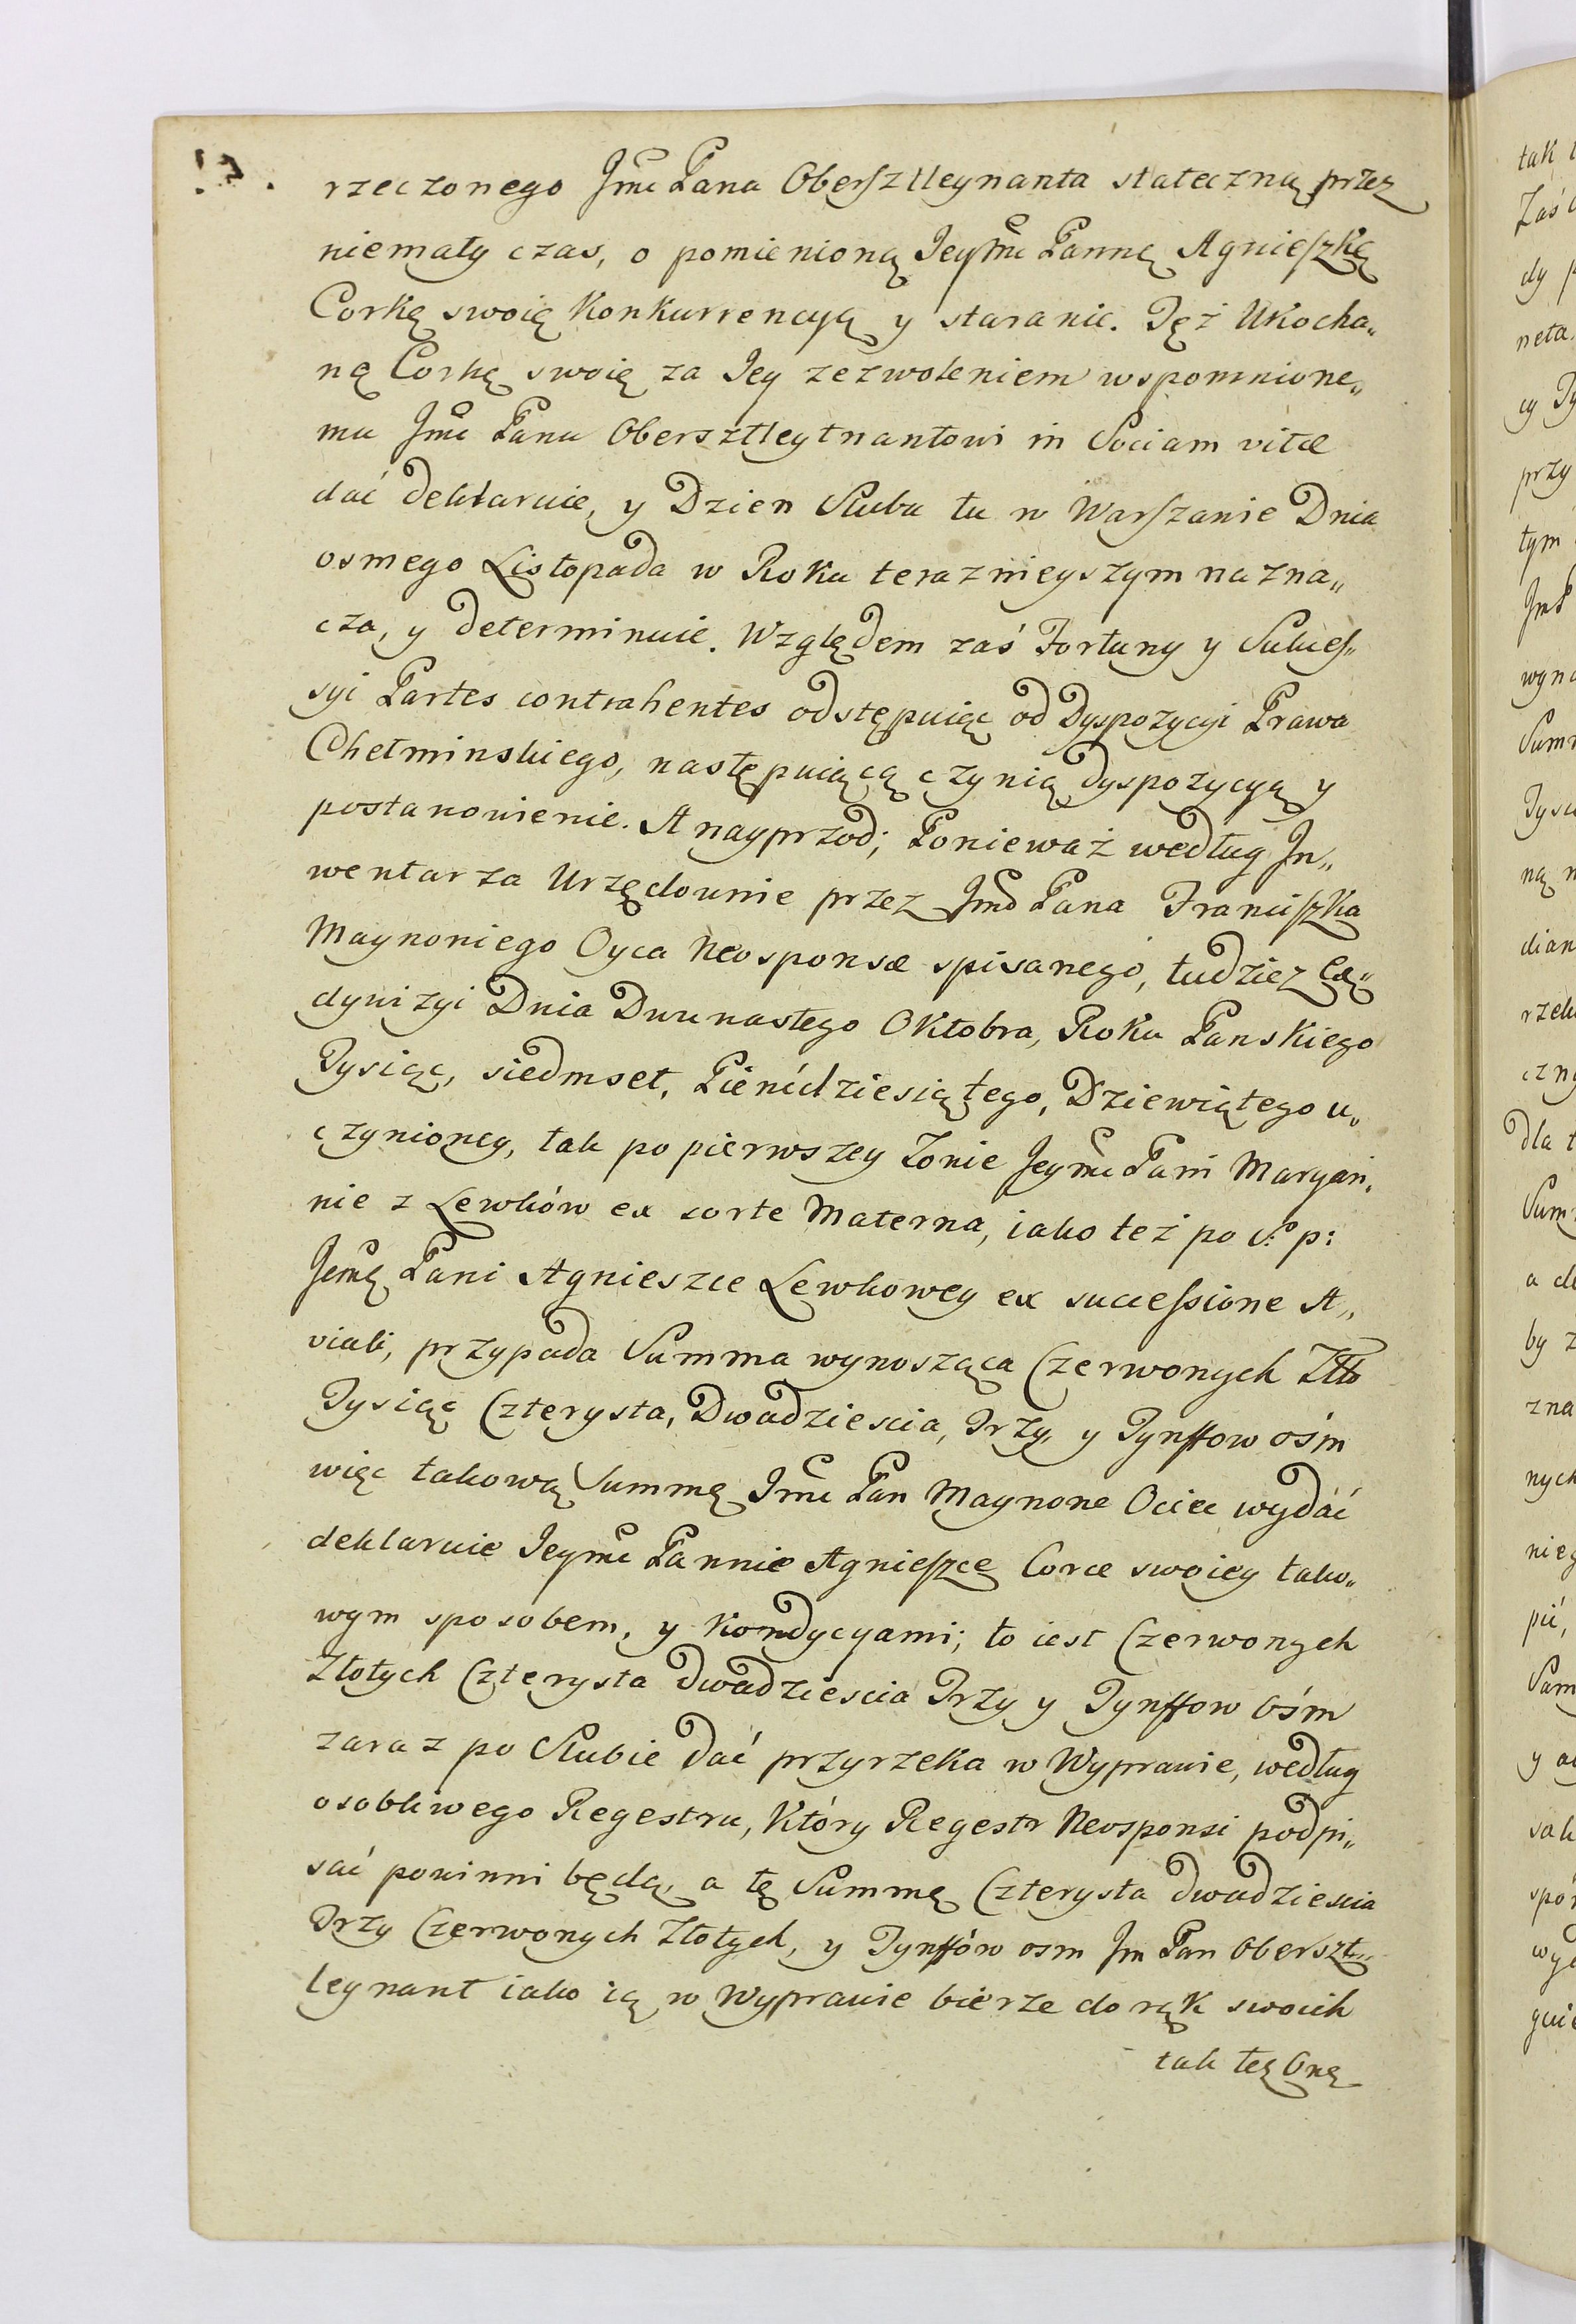 rzeczonego Jmć Pana Obersztleynanta stateczną przez
niemały czas, o pomienioną Jeymć Pannę Agnieszkę
Corkę swoię Konkurrencyą y staranie. Tęż Ukocha„
ną Corkę swoię za Jey zezwoleniem wspomnione„
mu Jmć Panu Obersztleytnantowi in Sociam vitæ
dać deklaruie, y Dzien Slubu tu w Warszawie Dnia
osmego Listopada w Roku teraznieyszym nazna„
cza, y determinuie. Względem zaś Fortuny y Sukces„
syi Partes contrahentes odstępuiąc od Dyspozycyi Prawa
Chełminskiego, następuiącą czynią dyspozycyą y
postanowienie. A nayprzod; Ponieważ według In„
wentarza Urzędownie przez Jmć Pana Franciszka
Maynoniego Oyca Neosponsæ spisanego, tudziez Ex„
dywizyi Dnia Dwunastego Oktobra, Roku Panskiego
Tysiąc, siedmset, Pięńdziesiątego, Dziewiątego u„
czynioney, tak po pierwszey Zonie Jeymć Pani Maryan„
nie z Lewków ex sorte Materna, iako też po S: p:
Jemć Pani Agnieszce Lewkowey ex successione A„
viali, przypada Summa wynosząca Czerwonych Złł
Tysiąc Czterysta, Dwadziescia, Trzy, y Tynffow ośm
więc takową Summę Jmć Pan Maynone Ociec wydać
deklaruie Jeymć Pannie Agnieszce Corce swoiey tako„
wym sposobem, y Kondycyami; to iest Czerwonych
Złotych Czterysta Dwadziescia Trzy y Tynffow Ośm
zaraz po Slubie dać przyrzeka w Wyprawie, według
osobliwego Regestru, Który Regestr Neosponsi podpi„
sać powinni będą, a tę Summę Czterysta dwadziescia
Trzy Czerwonych Złotych, y Tynffów osm Jm Pan Oberszt„
leynant iako ią w Wyprawie bierze do rąk swoich
tak też Onę